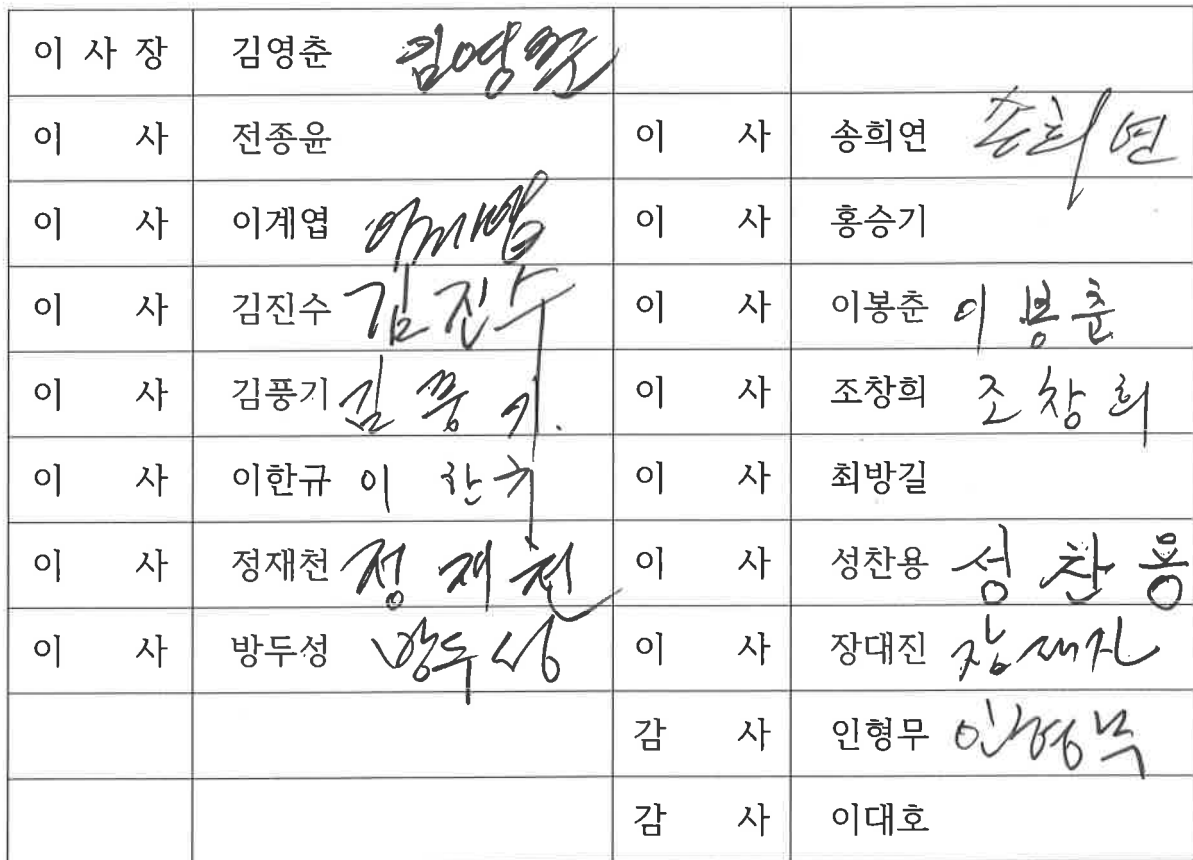 이 사 장 김영춘 김영춘
이 사 전종윤 이 사 송희연 송희연
이 사 이계엽 이계엽 이 사 홍승기
이 사 김진수 김진수 이 사 이봉춘 이봉춘
이 사 김풍기 김풍기. 이 사 조창희 조창희
이 사 이한규 이한규 이 사 최방길
이 사 정재천 정재천 이 사 성찬용 성찬용
이 사 방두성 방두성 이 사 장대진 장대진
감 사 인형무 인형무
감 사 이대호